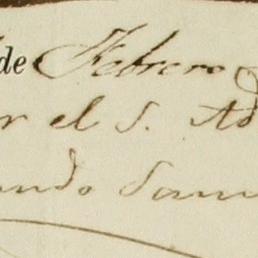 de Febrero
r el S. Ad
ando Sam